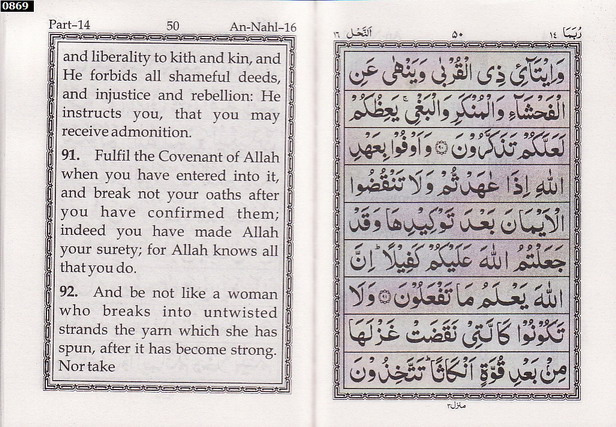 0869
Part–14 50 An-Nahl–16
and liberality to kith and kin, and
He forbids all shameful deeds,
and injustice and rebellion: He
instructs you, that you may
receive admonition.
91. Fulfil the Covenant of Allah
when you have entered into it,
and break not your oaths after
you have confirmed them;
indeed you have made Allah
your surety; for Allah knows all
that you do.
92. And be not like a woman
who breaks into untwisted
strands the yarn which she has
spun, after it has become strong.
Nor take
رُبَمَا ١٤ ٥٠ اَلنَّحْل ١٦
وَاِيْتَآئِ ذِى الْقُرْبٰى وَيَنْهٰى عَنِ
الْفَحْشَآءِ وَالْمُنْكَرِ وَالْبَغْىِ ۚ يَعِظُكُمْ
لَعَلَّكُمْ تَذَكَّرُوْنَ ۝٩٠ وَاَوْفُوْا بِعَهْدِ
اللّٰهِ اِذَا عٰهَدْتُّمْ وَلَا تَنْقُضُوا
الْاَيْمَانَ بَعْدَ تَوْكِيْدِهَا وَقَدْ
جَعَلْتُمُ اللّٰهَ عَلَيْكُمْ كَفِيْلًا ؕ اِنَّ
اللّٰهَ يَعْلَمُ مَا تَفْعَلُوْنَ ۝٩١ وَلَا
تَكُوْنُوْا كَالَّتِىْ نَقَضَتْ غَزْلَهَا
مِنْۢ بَعْدِ قُوَّةٍ اَنْكَاثًا ؕ تَتَّخِذُوْنَ
منزل ٣